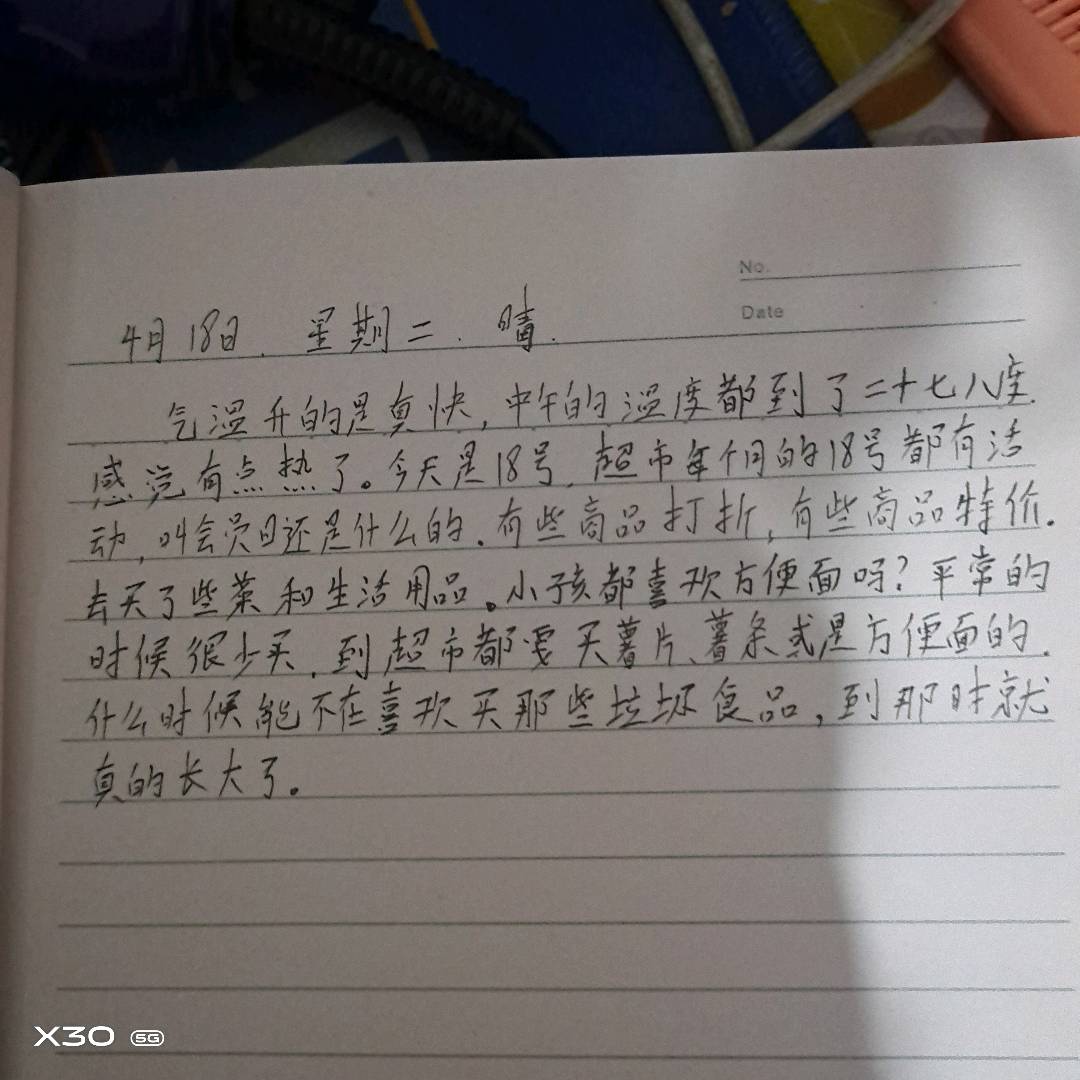 No.
Date
4月18日. 星期二. 晴.
气温升的是真快,中午的温度都到了二十七八度.
感觉有点热了。今天是18号,超市每个月的18号都有活
动,叫会员日还是什么的.有些商品打折,有些商品特价.
去买了些菜和生活用品。小孩都喜欢方便面吗?平常的
时候很少买,到超市都要买薯片、薯条或是方便面的.
什么时候能不在喜欢买那些垃圾食品,到那时就
真的长大了。
X30 5G